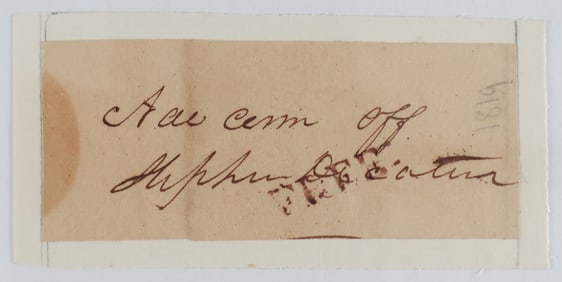 Nav com off
Stephen Decatur
FREE
1819